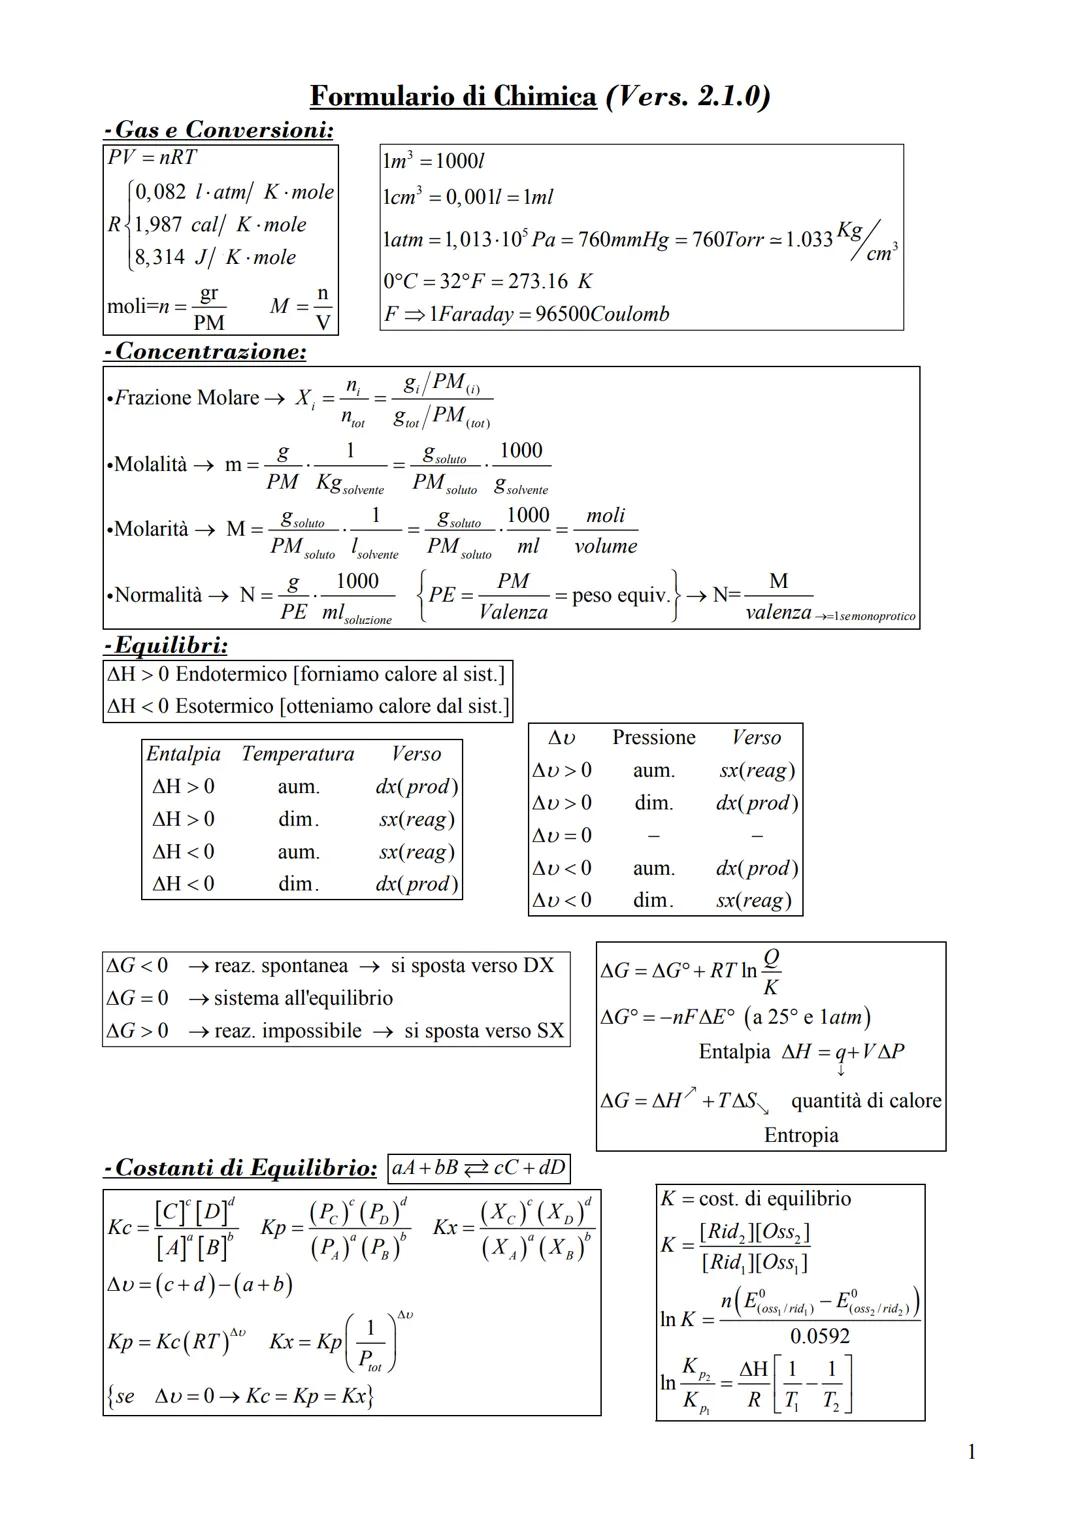 Formulario di Chimica (Vers. 2.1.0)
-Gas e Conversioni:
PV = nRT
R { 0,082 l·atm/ K·mole
1,987 cal/ K·mole
8,314 J/ K·mole
moli=n = gr/PM   M = n/V
1m³ = 1000l
1cm³ = 0,001l = 1ml
1atm = 1,013·10⁵ Pa = 760mmHg = 760Torr ≃ 1.033 Kg/cm³
0°C = 32°F = 273.16 K
F ⇒ 1Faraday = 96500Coulomb
-Concentrazione:
•Frazione Molare → X_i = n_i/n_tot = (g_i/PM_(i))/(g_tot/PM_(tot))
•Molalità → m = g/PM · 1/Kg_solvente = g_soluto/PM_soluto · 1000/g_solvente
•Molarità → M = g_soluto/PM_soluto · 1/l_solvente = g_soluto/PM_soluto · 1000/ml = moli/volume
•Normalità → N = g/PE · 1000/ml_soluzione {PE = PM/Valenza = peso equiv.} → N= M/valenza →=1 se monoprotico
-Equilibri:
ΔH > 0 Endotermico [forniamo calore al sist.]
ΔH < 0 Esotermico [otteniamo calore dal sist.]
Entalpia Temperatura Verso
ΔH > 0 aum. dx(prod)
ΔH > 0 dim. sx(reag)
ΔH < 0 aum. sx(reag)
ΔH < 0 dim. dx(prod)
Δυ Pressione Verso
Δυ > 0 aum. sx(reag)
Δυ > 0 dim. dx(prod)
Δυ = 0 – –
Δυ < 0 aum. dx(prod)
Δυ < 0 dim. sx(reag)
ΔG < 0 → reaz. spontanea → si sposta verso DX
ΔG = 0 → sistema all'equilibrio
ΔG > 0 → reaz. impossibile → si sposta verso SX
ΔG = ΔG° + RT ln Q/K
ΔG° = −nFΔE° (a 25° e 1atm)
Entalpia ΔH = q+VΔP
↓
ΔG = ΔH↗ + TΔS↘ quantità di calore
Entropia
-Costanti di Equilibrio: aA + bB ⇄ cC + dD
Kc = [C]^c [D]^d / [A]^a [B]^b   Kp = (P_C)^c (P_D)^d / (P_A)^a (P_B)^b   Kx = (X_C)^c (X_D)^d / (X_A)^a (X_B)^b
Δυ = (c+d)−(a+b)
Kp = Kc(RT)^Δυ   Kx = Kp(1/P_tot)^Δυ
{se Δυ = 0 → Kc = Kp = Kx}
K = cost. di equilibrio
K = [Rid₂][Oss₂] / [Rid₁][Oss₁]
ln K = n(E⁰_(oss₁/rid₁) − E⁰_(oss₂/rid₂)) / 0.0592
ln K_p₂/K_p₁ = ΔH/R [1/T₁ − 1/T₂]
1